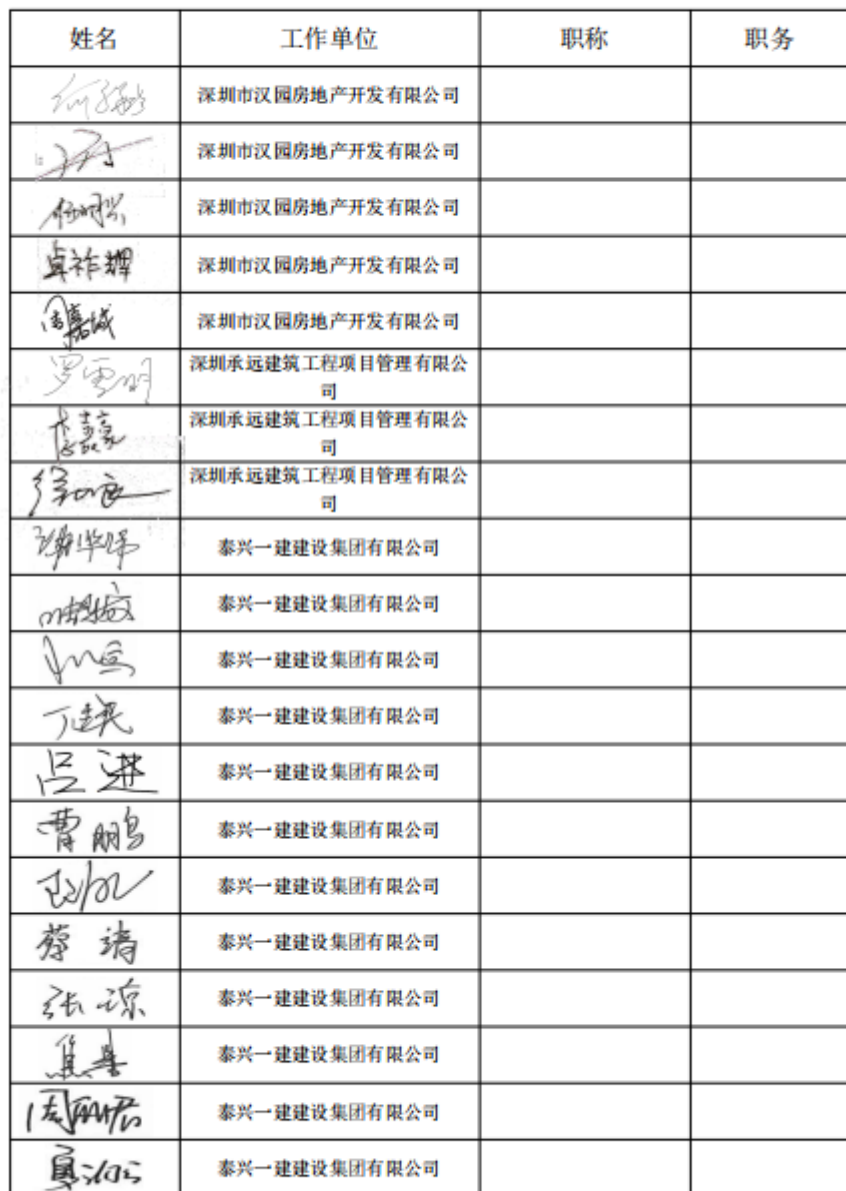 姓名 工作单位 职称 职务
深圳市汉园房地产开发有限公司
深圳市汉园房地产开发有限公司
深圳市汉园房地产开发有限公司
卓祚辉 深圳市汉园房地产开发有限公司
周嘉城 深圳市汉园房地产开发有限公司
罗雪明 深圳承远建筑工程项目管理有限公
司
李嘉豪 深圳承远建筑工程项目管理有限公
司
深圳承远建筑工程项目管理有限公
司
泰兴一建建设集团有限公司
泰兴一建建设集团有限公司
泰兴一建建设集团有限公司
丁建英 泰兴一建建设集团有限公司
吕进 泰兴一建建设集团有限公司
曹鹏 泰兴一建建设集团有限公司
泰兴一建建设集团有限公司
蔡靖 泰兴一建建设集团有限公司
张琼 泰兴一建建设集团有限公司
泰兴一建建设集团有限公司
泰兴一建建设集团有限公司
泰兴一建建设集团有限公司